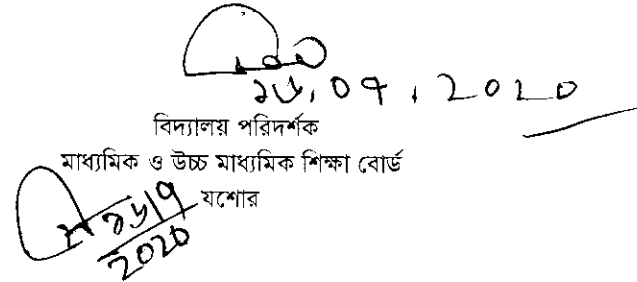 ২৮.০৭.২০২০
বিদ্যালয় পরিদর্শক
মাধ্যমিক ও উচ্চ মাধ্যমিক শিক্ষা বোর্ড
যশোর
২০২০